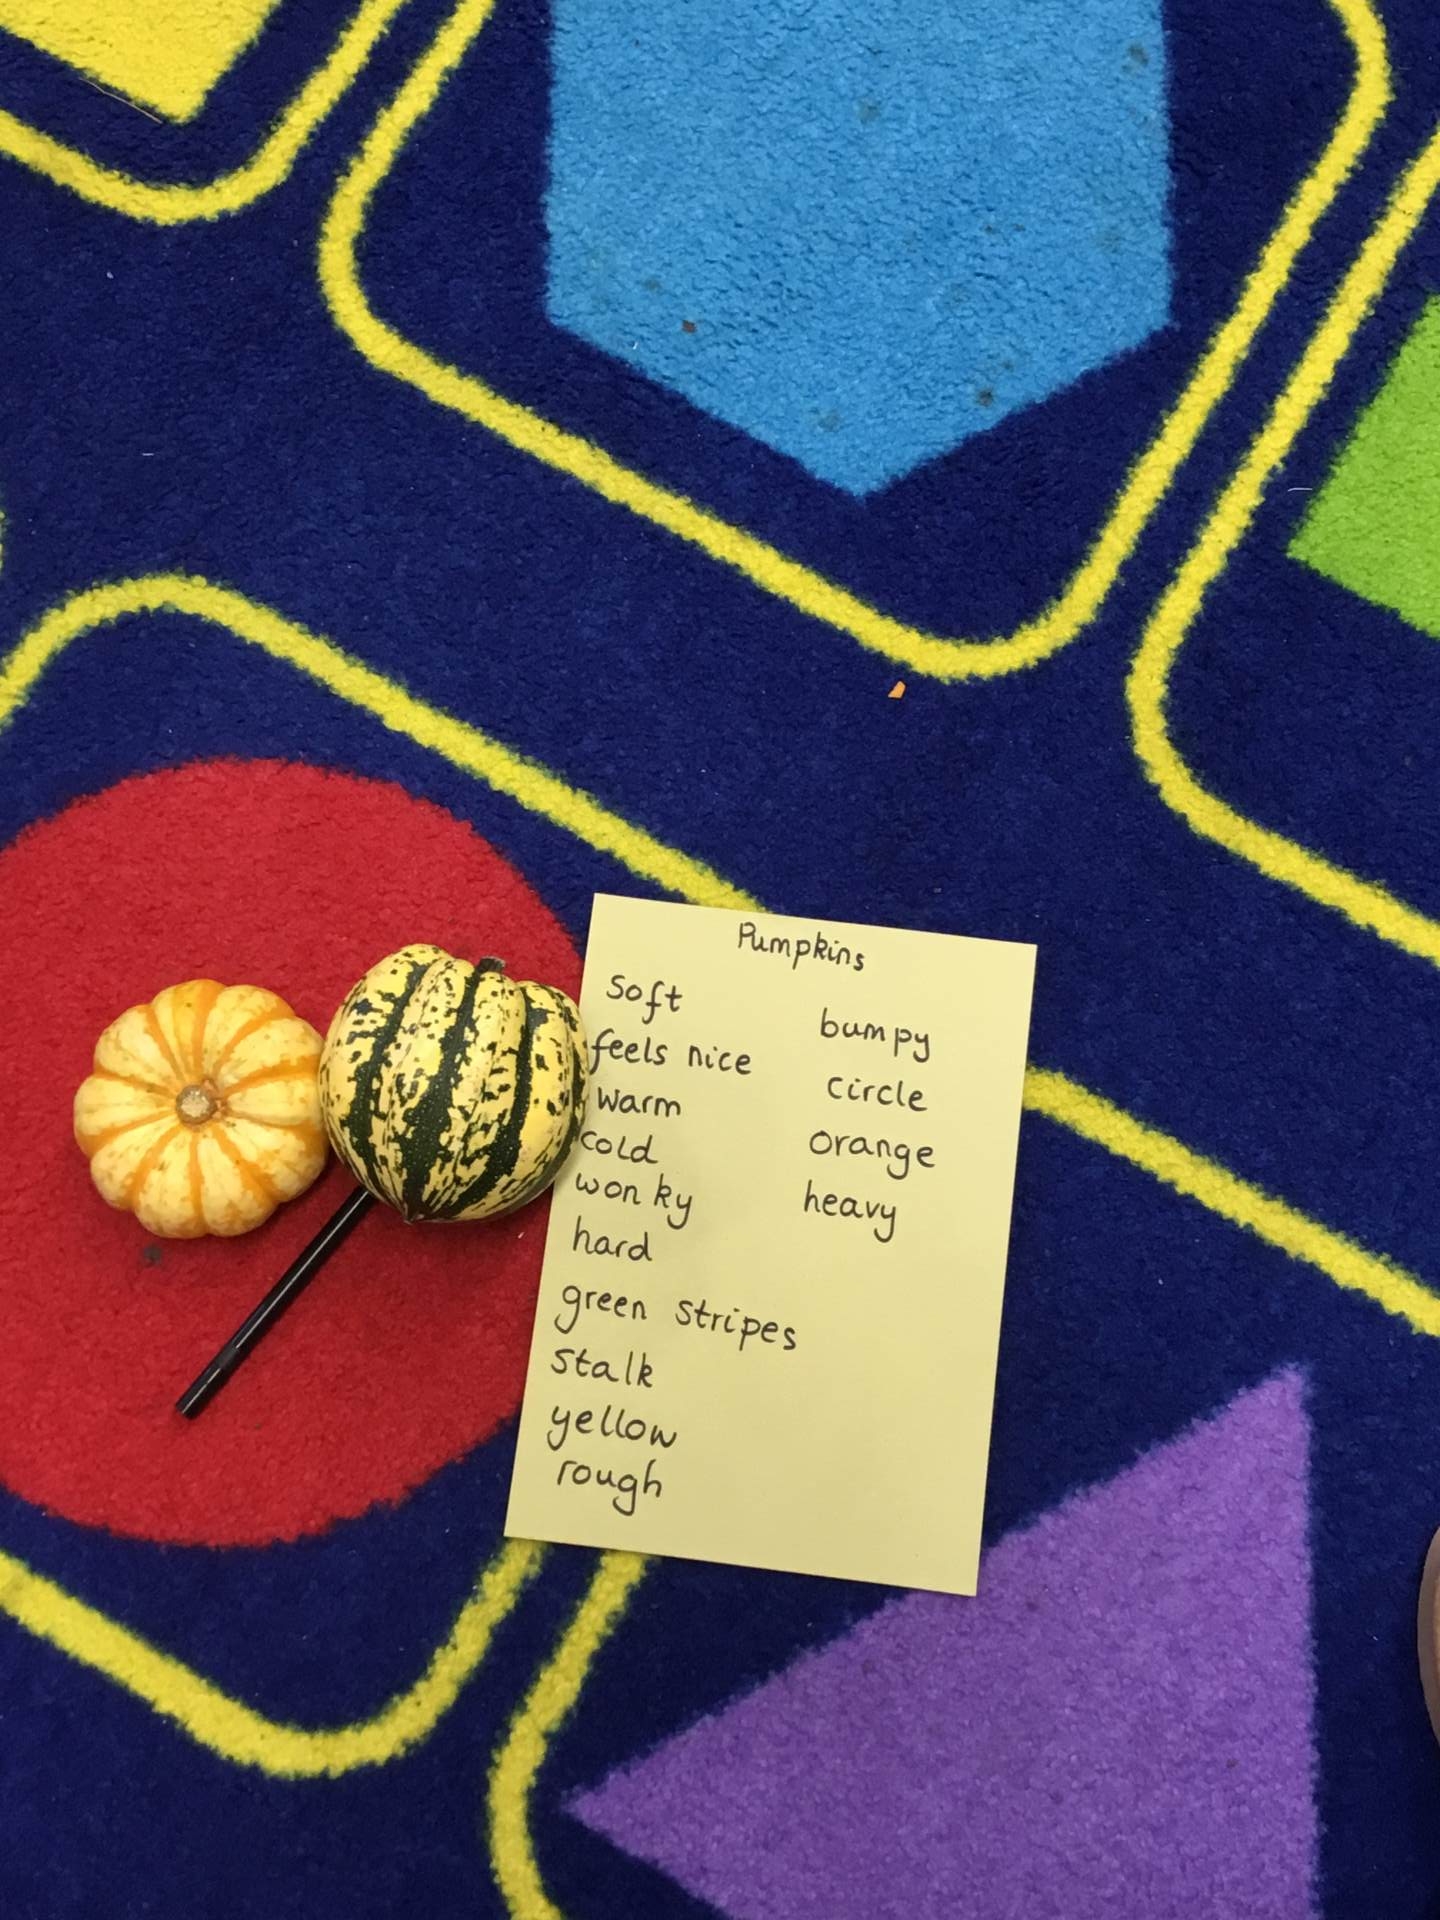 Pumpkins
soft
feels nice
warm
cold
wonky
hard
green stripes
stalk
yellow
rough
bumpy
circle
orange
heavy